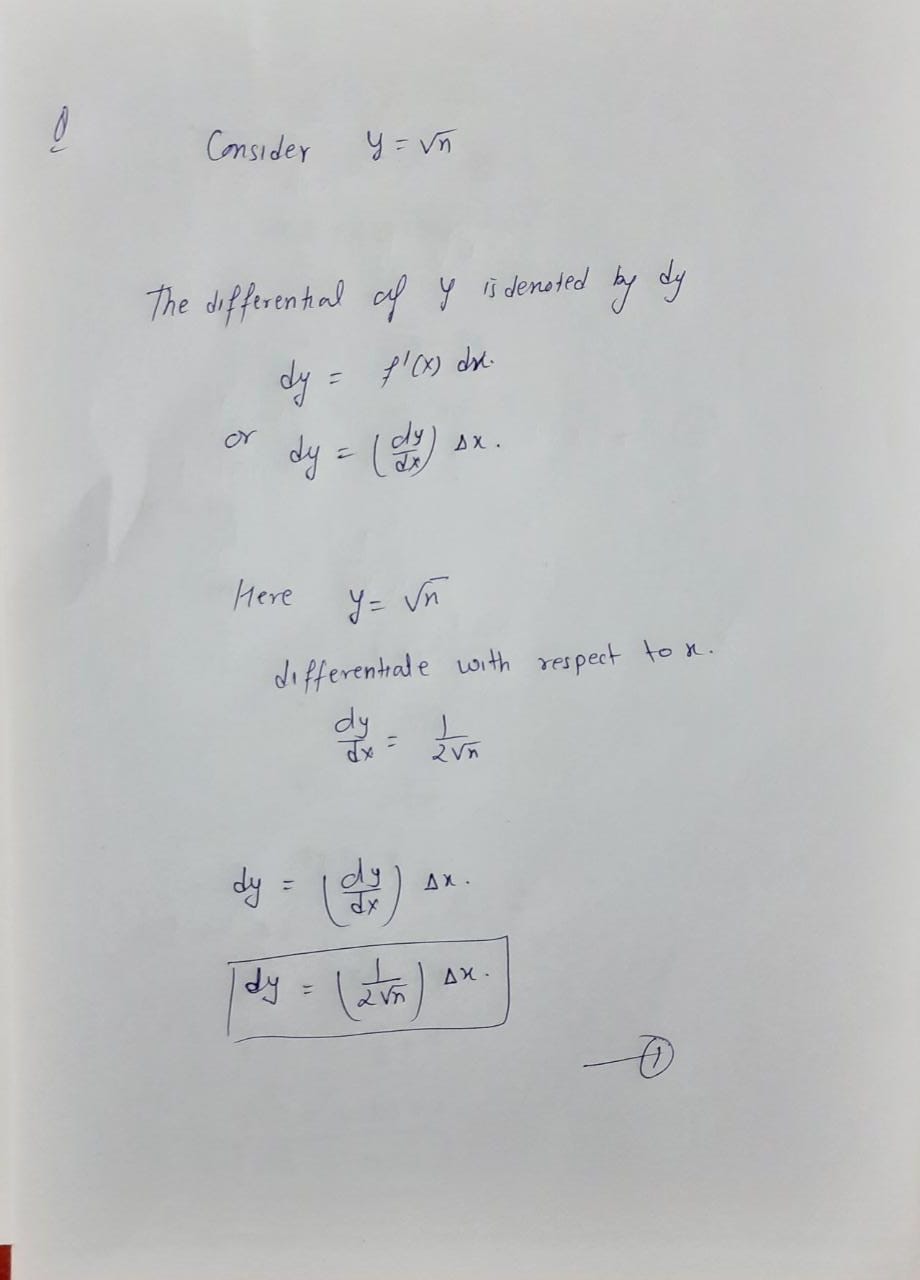 Q
Consider y = √x
The differential of y is denoted by dy
dy = f'(x) dx.
or dy = (dy/dx) Δx.
Here y = √x
differentiate with respect to x.
dy/dx = 1/2√x
dy = (dy/dx) Δx.
dy = (1/2√x) Δx.
—①